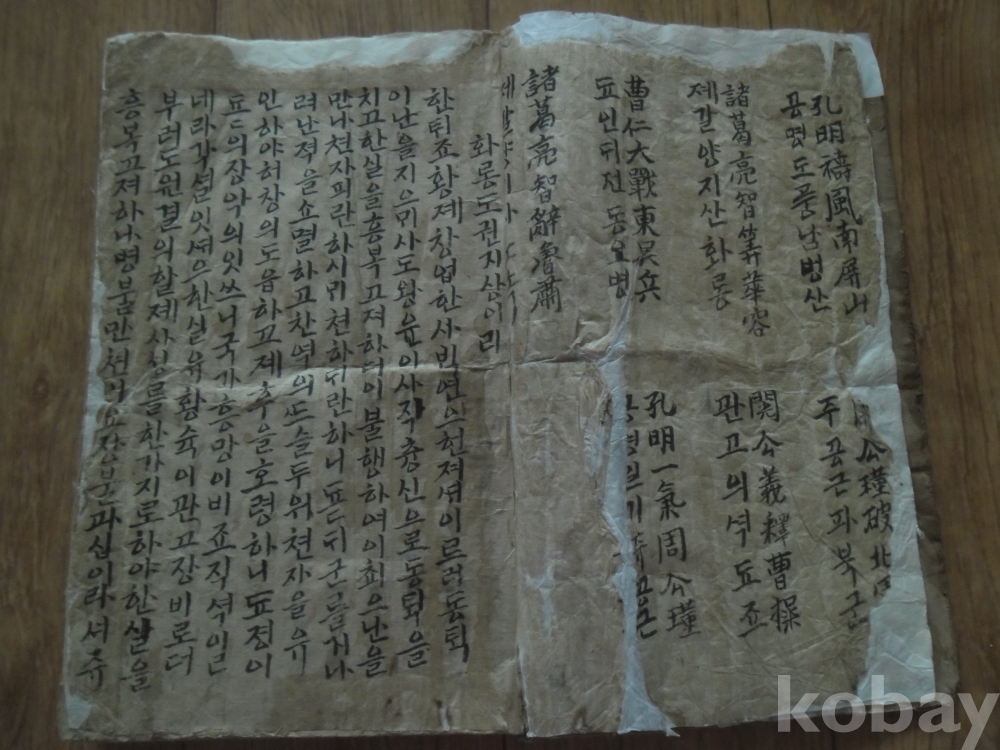 孔明禱風南屏山
공명도풍남병산
公瑾破北
주공근파북군
諸葛亮智筭華容
제갈양지산화룡
関公義釋曹操
관고의셕됴조
曹仁大戰東吳兵
됴인뒤전동오병
孔明一氣周公瑾
공명일기 공근
諸葛亮智辭魯肅
화룡도권지상이리
한퇴죠황졔창업한사빅연의헌졔셔이르러동탁
이난을지으뮈사도왕윤이사직츙신으로동퇵을
치고한실을흥복고져하더이불행하여이최으난을
만나쳔자피란하시리쳔하뒤란하니됴됴뒤군를거나
려난젹을쇼멸하고찬역의뜨슬두워쳔자을유
인하야허창의도읍하고졔후을호령하니됴졍이
됴됴의장악의잇쓰니국가흥망이비죠직셕이른
네라각셜잇셔으한실유황슉이관고장비로더
부러도원결의할졔사싱를한가지로하야한실을
흥복고져하나병불만쳔니요장불과십이라셔쥬
kobay